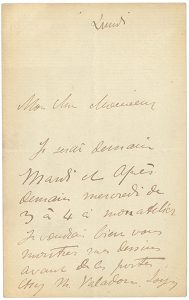 Lundi
Mon cher Monsieur
Je serai demain
Mardi et Après
demain mercredi de
3 à 4 à mon atelier
Je voudrais bien vous
montrer mes dessins
avant de les porter
chez M. Valadon